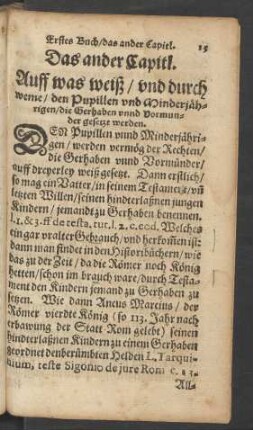 Erstes Buch/das ander Capitl. 15
Das ander Capitl.
Auff was weiß / vnd durch
weme / den Pupillen vnd Minderjäh-
rigen / die Gerhaben vnnd Vormun-
der gesetzt werden.
DEN Pupillen vnnd Minderjähri-
gen / werden vermög der Rechten/
die Gerhaben vnnd Vormünder/
auff dreyerley weiß gesetzt. Dann erstlich/
so mag ein Vatter / in seinem Testament / vñ
letzten Willen / seinen hinderlaßnen jungen
Kindern / jemandt zu Gerhaben benennen.
l. 1. & 3. ff de testa. tut. l. 2. c. eod. Welches
ein gar vralter Gebrauch / vnd herkomẽ ist:
dann man findet in den Historbüchern / wie
das zu der Zeit / da die Römer noch König
hetten / schon im brauch ware / durch Testa-
ment den Kindern jemand zu Gerhaben zu
setzen. Wie dann Ancus Marcius / der
Römer vierdte König (so 113. Jahr nach
erbawung der Statt Rom gelebt) seinen
hinderlaßnen Kindern zu einem Gerhaben
geordnet den berümbten Helden L. Tarqui-
nium, teste Sigonio de jure Rom. c.
All-